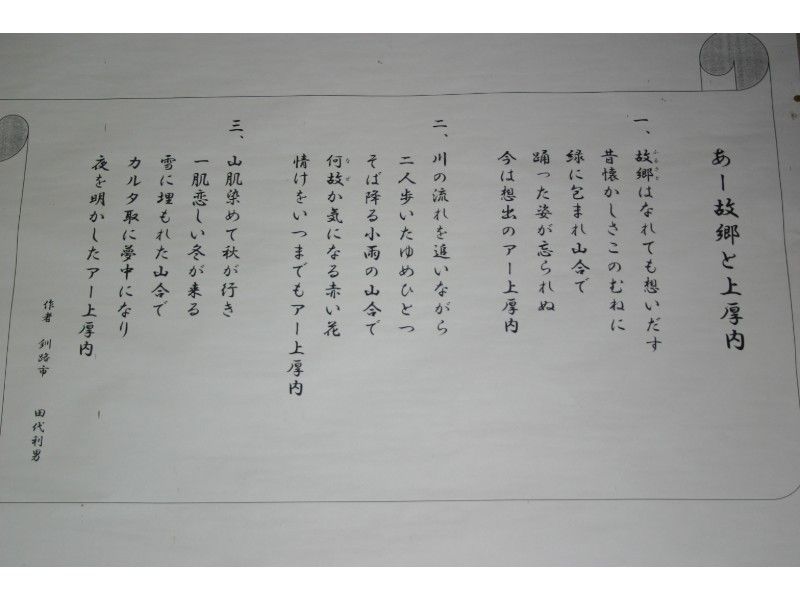 あー故郷と上厚内
一、故郷はなれても想いだす
ふるさと
昔懐かしさこのむねに
緑に包まれ山合で
踊った姿が忘られぬ
今は想出のアー上厚内
二、川の流れを追いながら
二人歩いたゆめひとつ
そば降る小雨の山合で
何故か気になる赤い花
なぜ
情けをいつまでもアー上厚内
三、山肌染めて秋が行き
一肌恋しい冬が来る
雪に埋もれた山合で
カルタ取に夢中になり
夜を明かしたアー上厚内
作者 釧路市 田代利男